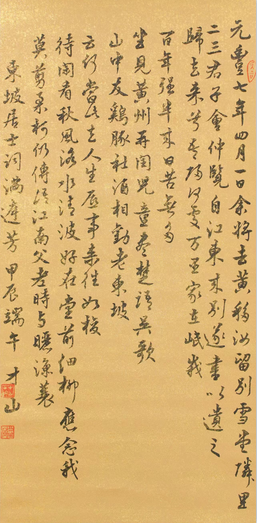 元豐七年四月一日余將去黃移汝留別雪堂隣里
二三君子會仲覽自江東來別遂書以遺之
歸去來兮吾歸何處万里家在岷峨
百年強半來日苦無多
坐見黃州再閏兒童盡楚語吳歌
山中友鷄豚社酒相勸老東坡
云何當此去人生底事來往如梭
待閑看秋風洛水清波好在堂前細柳應念我
莫剪柔柯仍傳語江南父老時與曬漁蓑
東坡居士詞滿庭芳 甲辰端午 才山